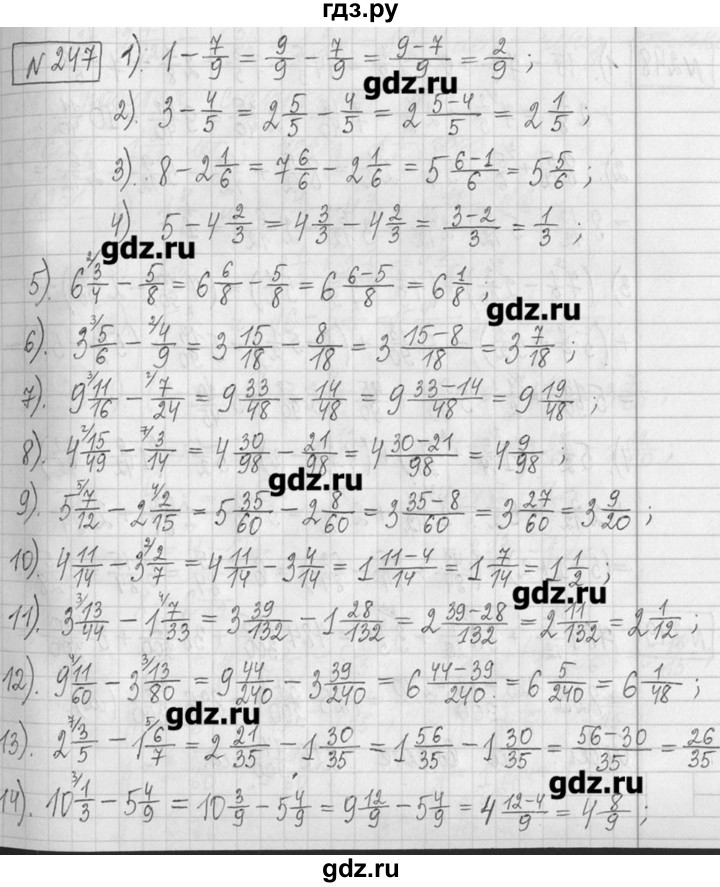 гдз.ру
№247 1). 1 - 7/9 = 9/9 - 7/9 = (9-7)/9 = 2/9 ;
gdz.ru
2). 3 - 4/5 = 2 5/5 - 4/5 = 2 (5-4)/5 = 2 1/5 ;
3). 8 - 2 1/6 = 7 6/6 - 2 1/6 = 5 (6-1)/6 = 5 5/6 ;
4). 5 - 4 2/3 = 4 3/3 - 4 2/3 = (3-2)/3 = 1/3 ;
gdz.ru
5). 6 ²⁄3/4 - 5/8 = 6 6/8 - 5/8 = 6 (6-5)/8 = 6 1/8 ;
gdz.ru
6). 3 ³⁄5/6 - ²⁄4/9 = 3 15/18 - 8/18 = 3 (15-8)/18 = 3 7/18 ;
7). 9 ³⁄11/16 - ²⁄7/24 = 9 33/48 - 14/48 = 9 (33-14)/48 = 9 19/48 ;
8). 4 ²⁄15/49 - ⁷⁄3/14 = 4 30/98 - 21/98 = 4 (30-21)/98 = 4 9/98 ;
gdz.ru
9). 5 ⁵⁄7/12 - 2 ⁴⁄2/15 = 5 35/60 - 2 8/60 = 3 (35-8)/60 = 3 27/60 = 3 9/20 ;
10). 4 11/14 - 3 ²⁄2/7 = 4 11/14 - 3 4/14 = 1 (11-4)/14 = 1 7/14 = 1 1/2 ;
gdz.ru
11). 3 ³⁄13/44 - 1 ⁴⁄7/33 = 3 39/132 - 1 28/132 = 2 (39-28)/132 = 2 11/132 = 2 1/12 ;
12). 9 ⁴⁄11/60 - 3 ³⁄13/80 = 9 44/240 - 3 39/240 = 6 (44-39)/240 = 6 5/240 = 6 1/48 ;
gdz.ru
13). 2 ⁷⁄3/5 - 1 ⁵⁄6/7 = 2 21/35 - 1 30/35 = 1 56/35 - 1 30/35 = (56-30)/35 = 26/35
gdz.ru
14). 10 ³⁄1/3 - 5 4/9 = 10 3/9 - 5 4/9 = 9 12/9 - 5 4/9 = 4 (12-4)/9 = 4 8/9 ;
gdz.ru